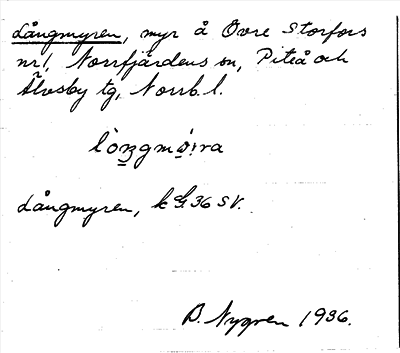 Långmyren, myr å Övre Storfors
nr 1, Norrfjärdens sn, Piteå och
Älvsby tg, Norrb. l.
lòŋgmø̀ra
Långmyren, k 36 SV.
B. Nygren 1936.